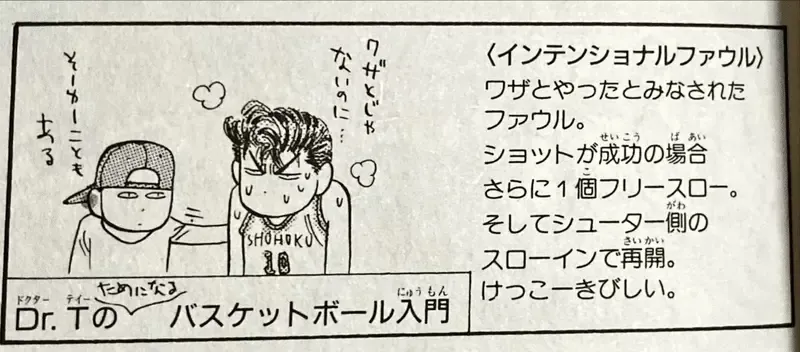 ワザとじゃ
ないのに…
そーゆーことも
ある
SHOHOKU
10
ためになる
Dr. Tの バスケットボール入門
〈インテンショナルファウル〉
ワザとやったとみなされた
ファウル。
ショットが成功の場合
さらに1個フリースロー。
そしてシューター側の
スローインで再開。
けっこーきびしい。